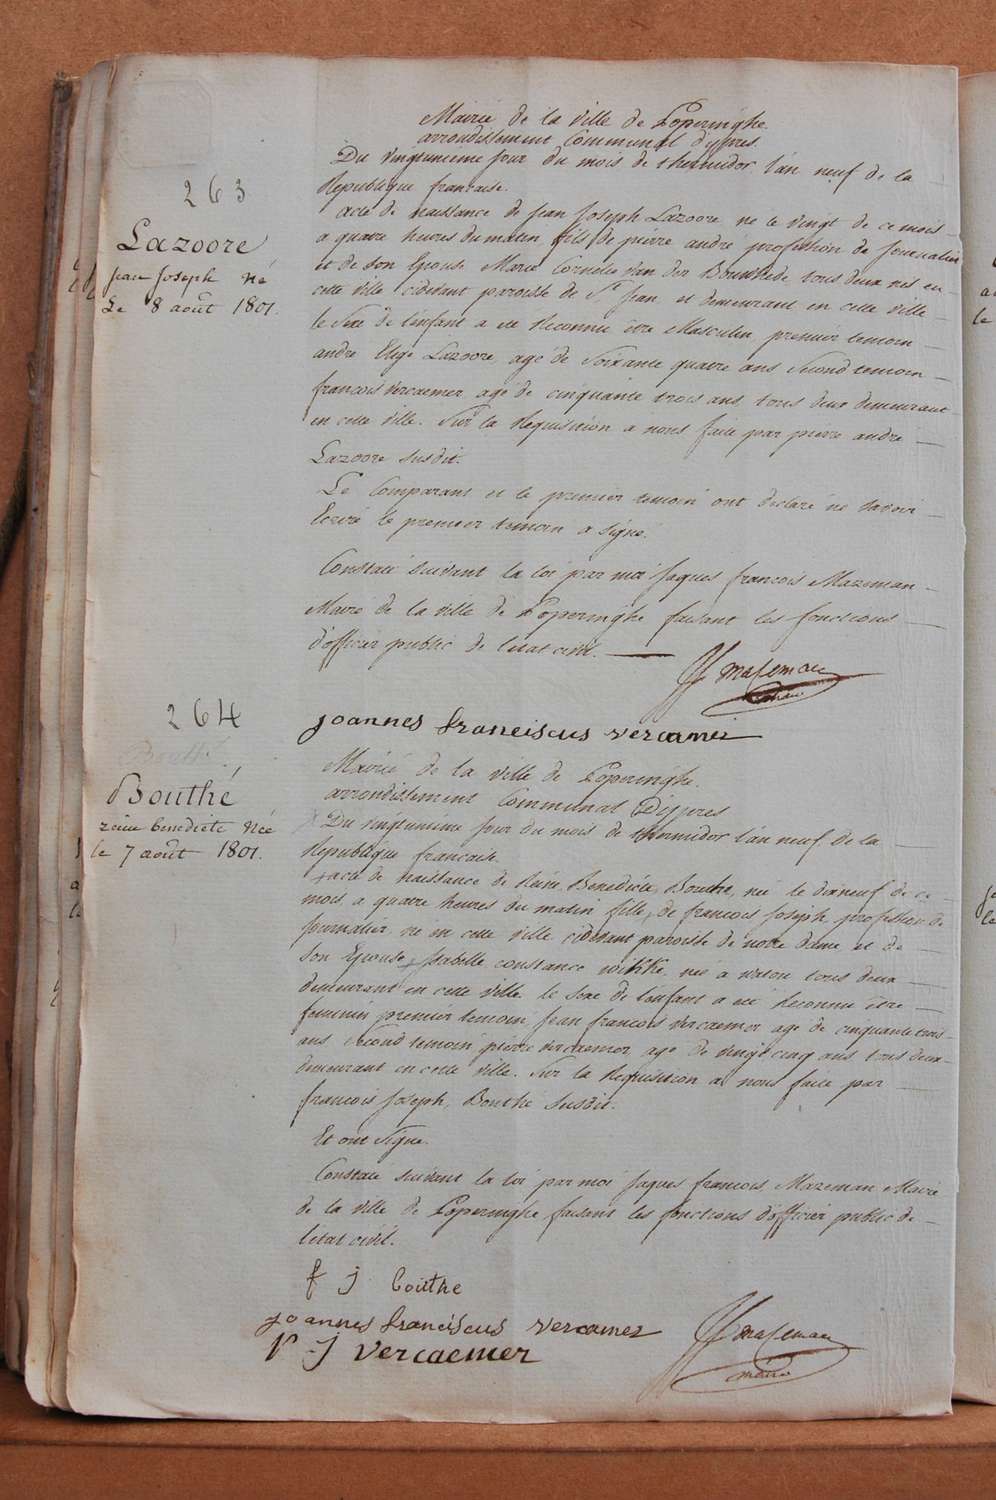 263
Lazoore
jean Joseph né
Le 8 août 1801.
Mairie de la ville de Poperinghe
arrondissement Communal d'ypres.
Du vingtunieme jour du mois de thermidor l'an neuf de la
Republique francaise.
acte de naissance de Jean Joseph Lazoore né le vingt de ce mois
a quatre heures du matin, fils de pierre andre profession de Journalier
et de son Epouse Marie Cornelie van der tous deux nes en
cette ville cidevant paroisse de St Jean et demeurant en cette ville
le Sexe de l'enfant a eté Reconnu être Masculin premier temoin
andre Lazoore, agé de Soixante quatre ans Second temoin
francois vercaemer agé de cinquante trois ans tous deux demeurant
en cette ville. Sur la Requisition a nous faite par pierre andre
Lazoore susdit.
Le Comparant et le premier temoin ont declaré ne savoir
Ecrire le premier temoin a Signé.
Constaté suivant la loi par moi Jaques francois Mazeman
Maire de la ville de Poperinghe faisant les fonctions
d'officier public de l'etat civil.
JJ mazeman
maire
joannes franciscus vercamer
264
Bouthé
Bouthé
reine benedicte née
le 7 août 1801.
Mairie de la ville de Poperinghe.
arrondissement Communal D'ypres
Du vingtunieme jour du mois de thermidor l'an neuf de la
Republique francaise.
acte de naissance de Reine Benedicte Bouthe, née le dixneuf de ce
mois a quatre heures du matin fille, de francois Joseph profession de
Journalier né en cette ville cidevant paroisse de notre dame et de
son Epouse Isabelle constance née a watou tous deux
demeurant en cette ville le sexe de l'enfant a eté Reconnu être
feminin premier temoin Jean francois vercaemer agé de cinquante trois
ans, Second temoin pierre vercaemer agé de vingt cinq ans tous deux
demeurant en cette ville. Sur la Requisition a nous faite par
francois Joseph, Bouthe susdit.
Et ont Signe.
Constaté suivant la loi par moi Jaques francois Mazeman Maire
de la ville de Poperinghe faisant les fonctions d'officier public de
l'etat civil.
f j bouthe
joannes franciscus vercamer
P J vercaemer
JJ mazeman
maire